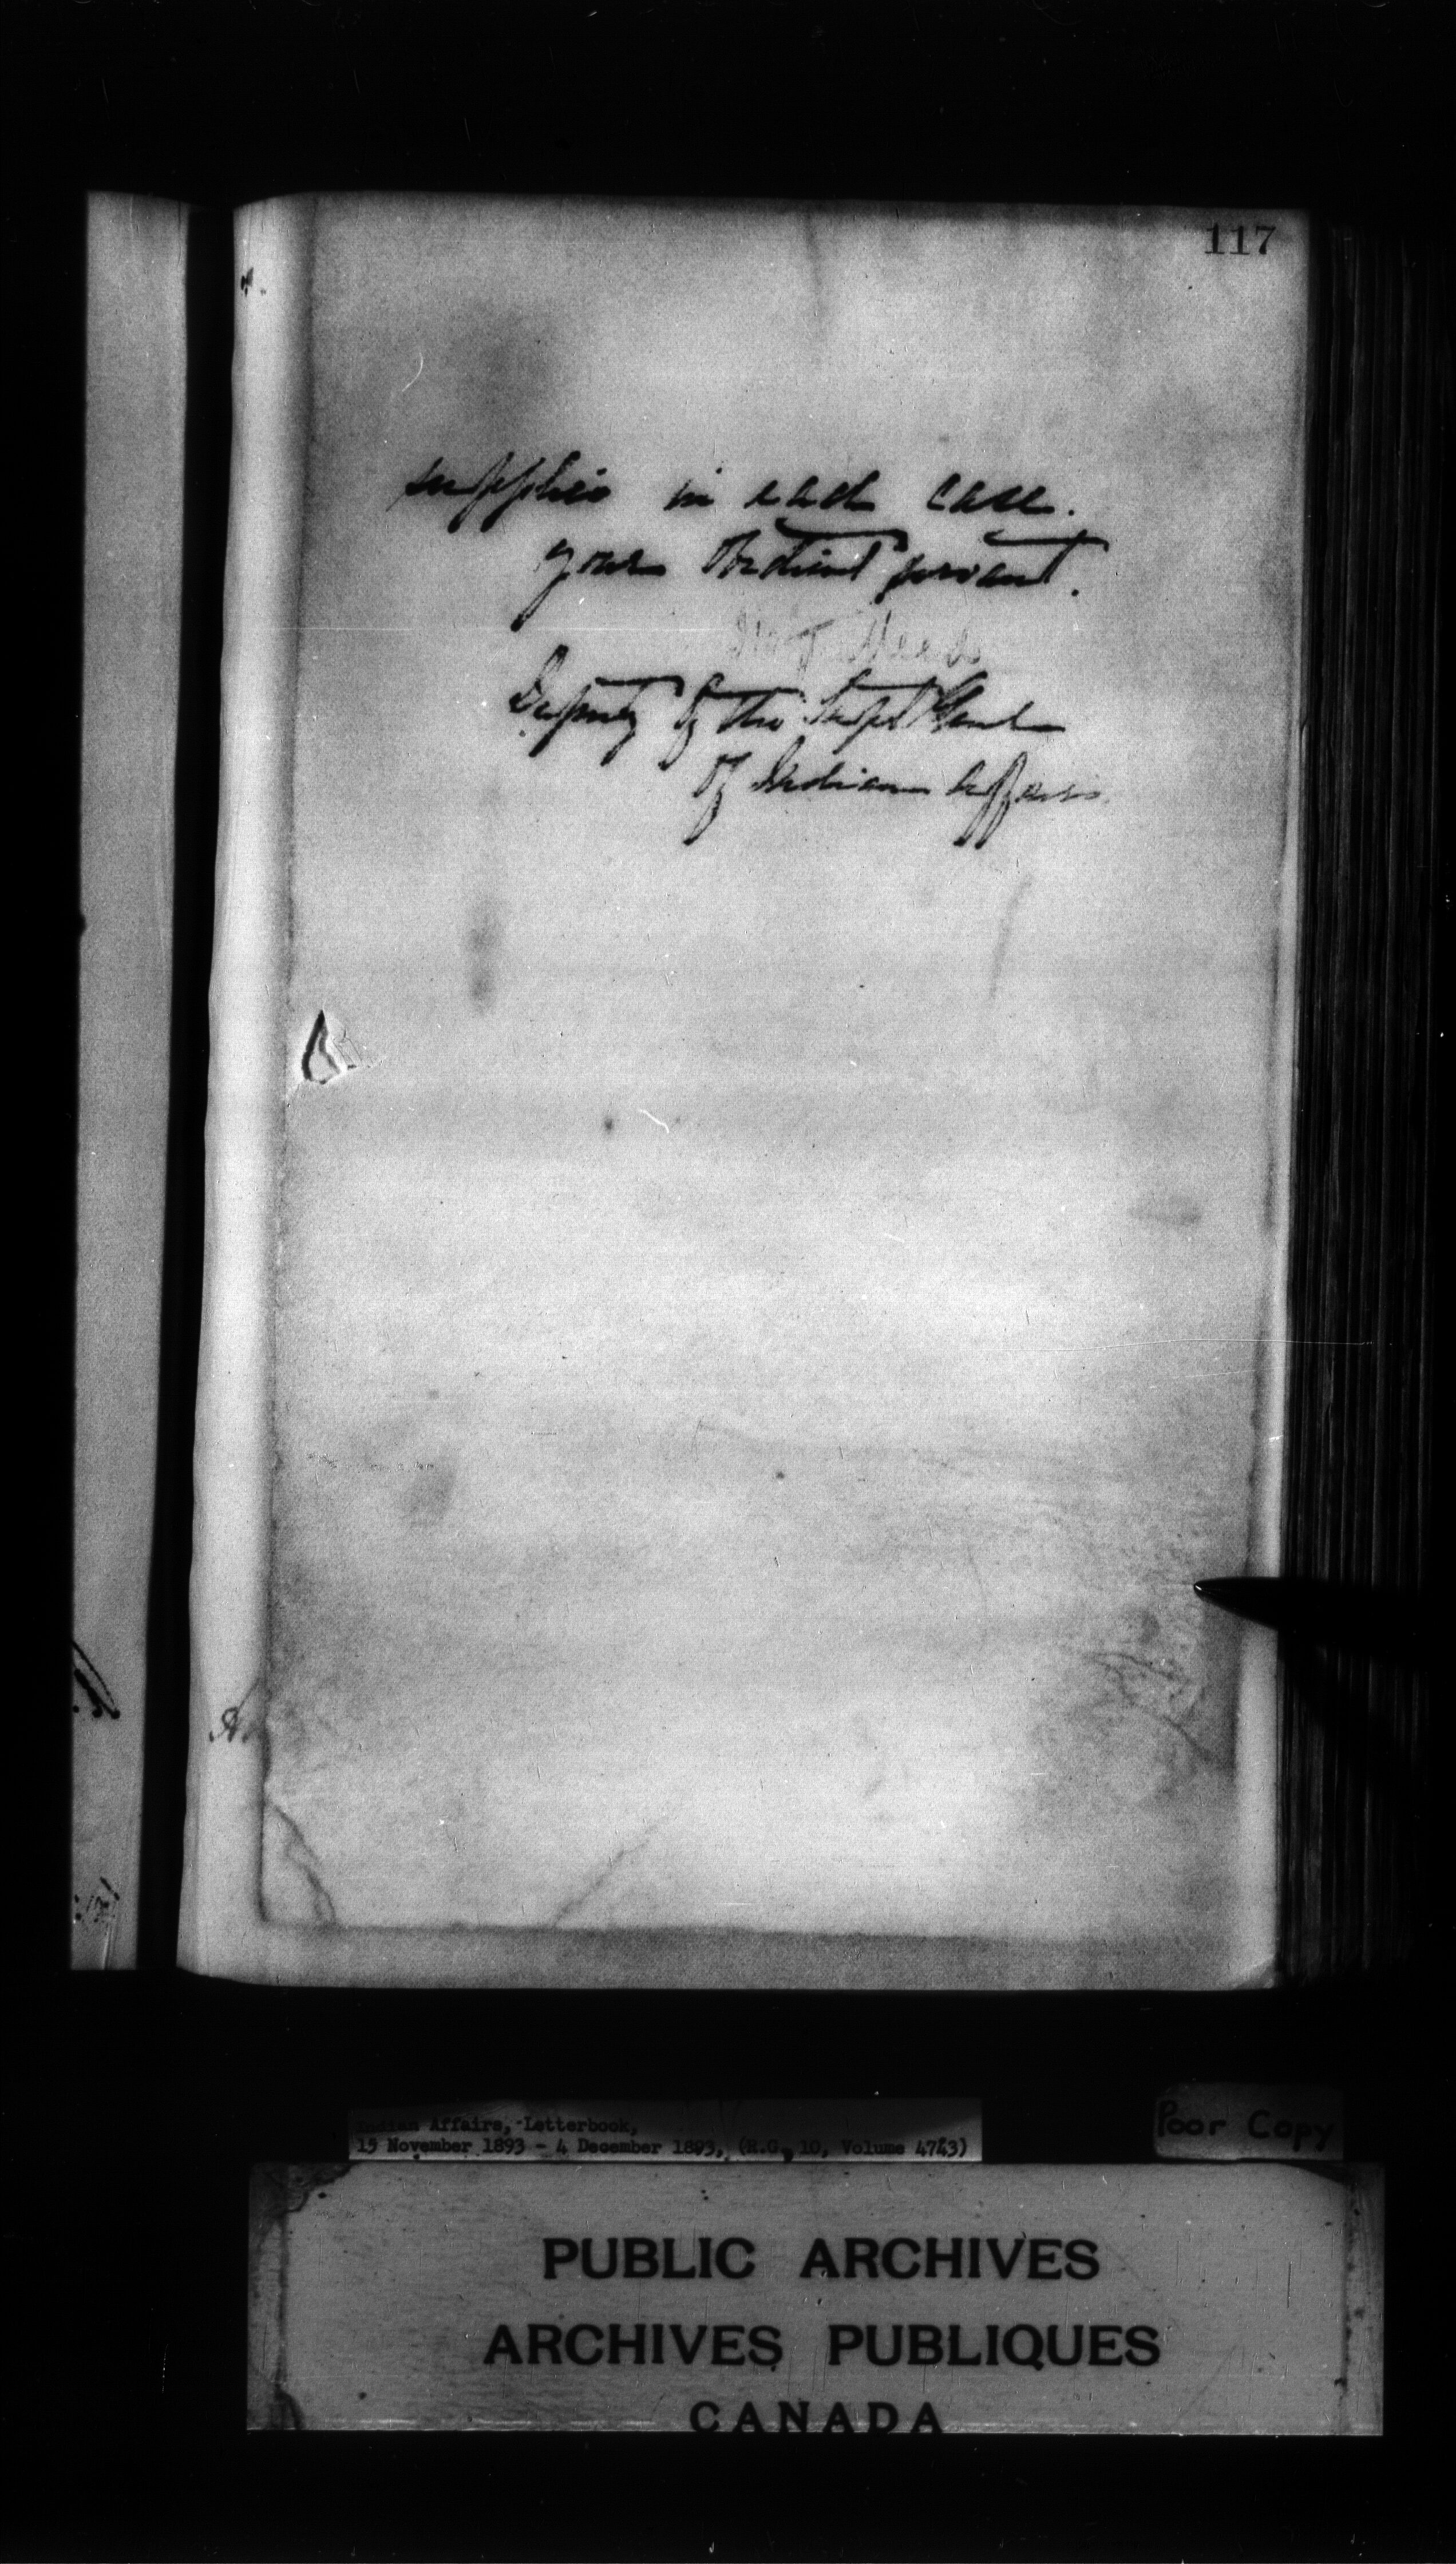 117
supplies in each case.
your obedient servant.
Deputy of the Supt Genl
of Indian Affairs
Indian Affairs, Letterbook,
15 November 1893 - 4 December 1893, (R.G. 10, Volume 4743)
Poor Copy
PUBLIC ARCHIVES
ARCHIVES PUBLIQUES
CANADA